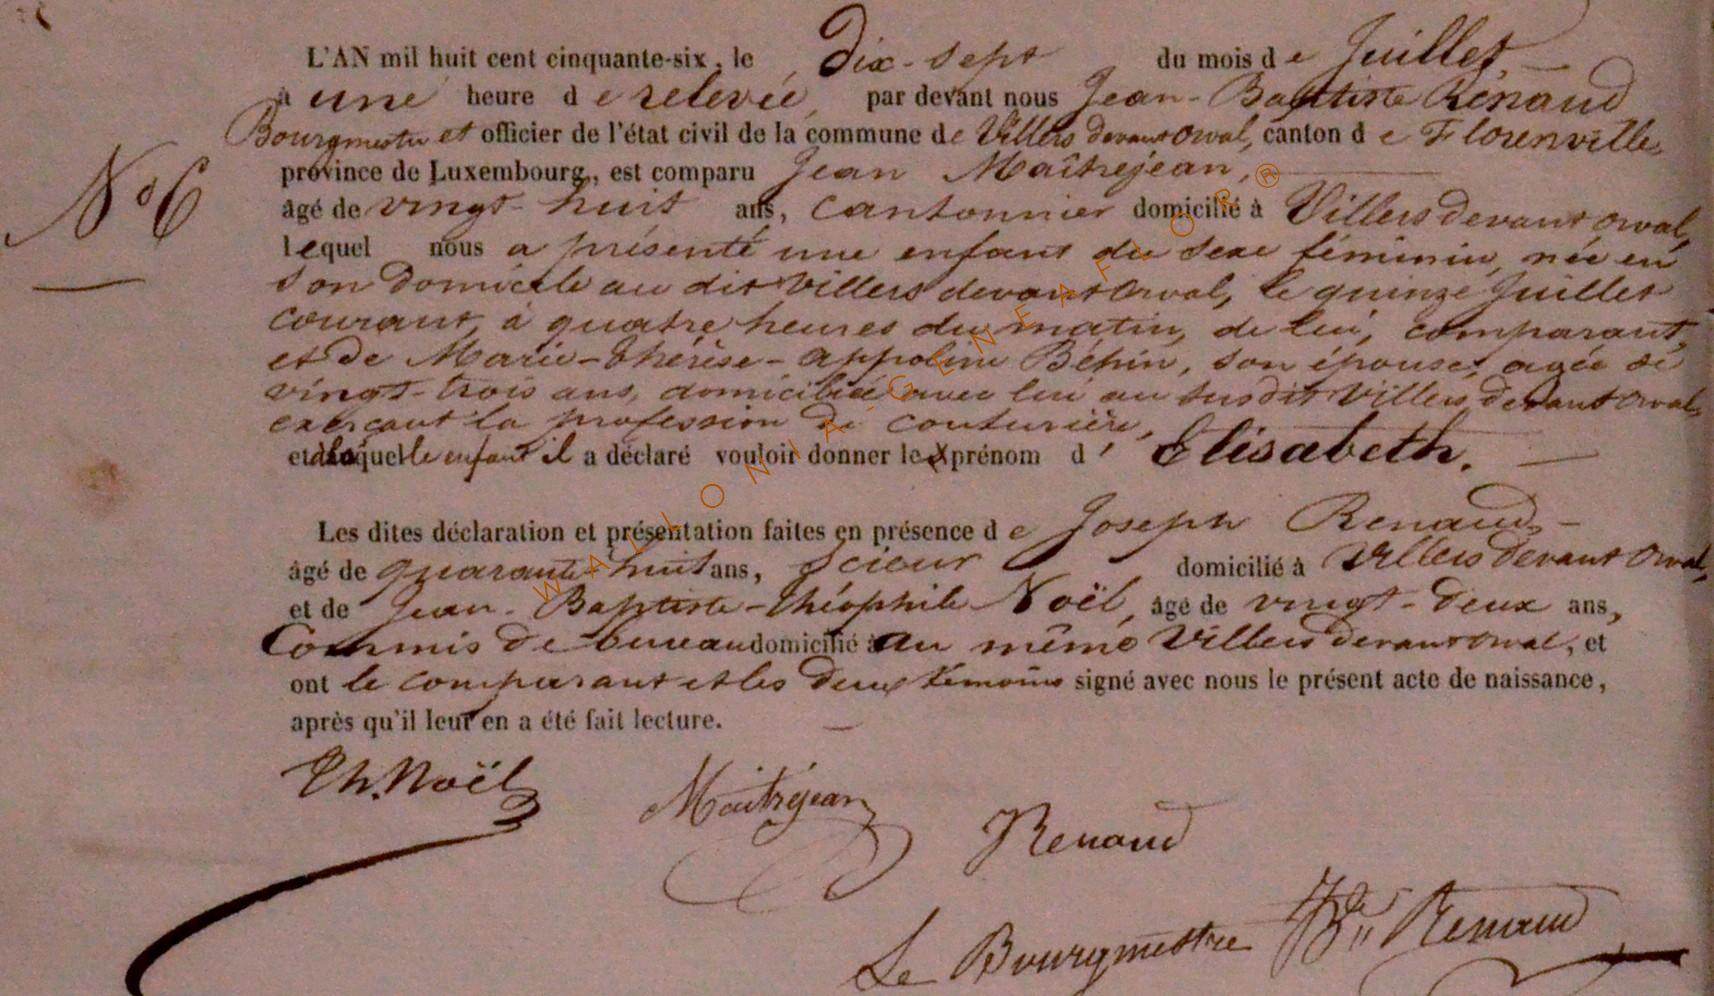 L'AN mil huit cent cinquante-six, le Dix-sept du mois de Juillet
à une heure de relevée, par devant nous Jean-Baptiste Renaud
Bourgmestre et officier de l'état civil de la commune de Villers devant Orval, canton de Florenville
province de Luxembourg, est comparu Jean Maîtrejean,
N° 6
âgé de vingt-huit ans, Cantonnier domicilié à Villers devant Orval,
lequel nous a présenté une enfant du sexe féminin, née en
son domicile au dit Villers devant Orval, le quinze Juillet
courant, à quatre heures du matin, de lui, comparant,
et de Marie-Thérèse-Appoline Béhin, son épouse, agée de
vingt-trois ans, domiciliée avec lui au susdit Villers devant Orval,
exerçant la profession de couturière,
et à laquelle enfant il a déclaré vouloir donner le prénom d'Elisabeth.
Les dites déclaration et présentation faites en présence de Joseph Renaud,
âgé de quarante-huit ans, Scieur domicilié à Villers devant Orval,
et de Jean-Baptiste-Théophile Noël, âgé de vingt-deux ans,
Commis de bureau domicilié à au même Villers devant Orval, et
ont le comparant et les deux témoins signé avec nous le présent acte de naissance,
après qu'il leur en a été fait lecture.
Th. Noël
Maitrejean
Renaud
Le Bourgmestre J Bte Renaud
WALLONIA-GENEAFLOR®